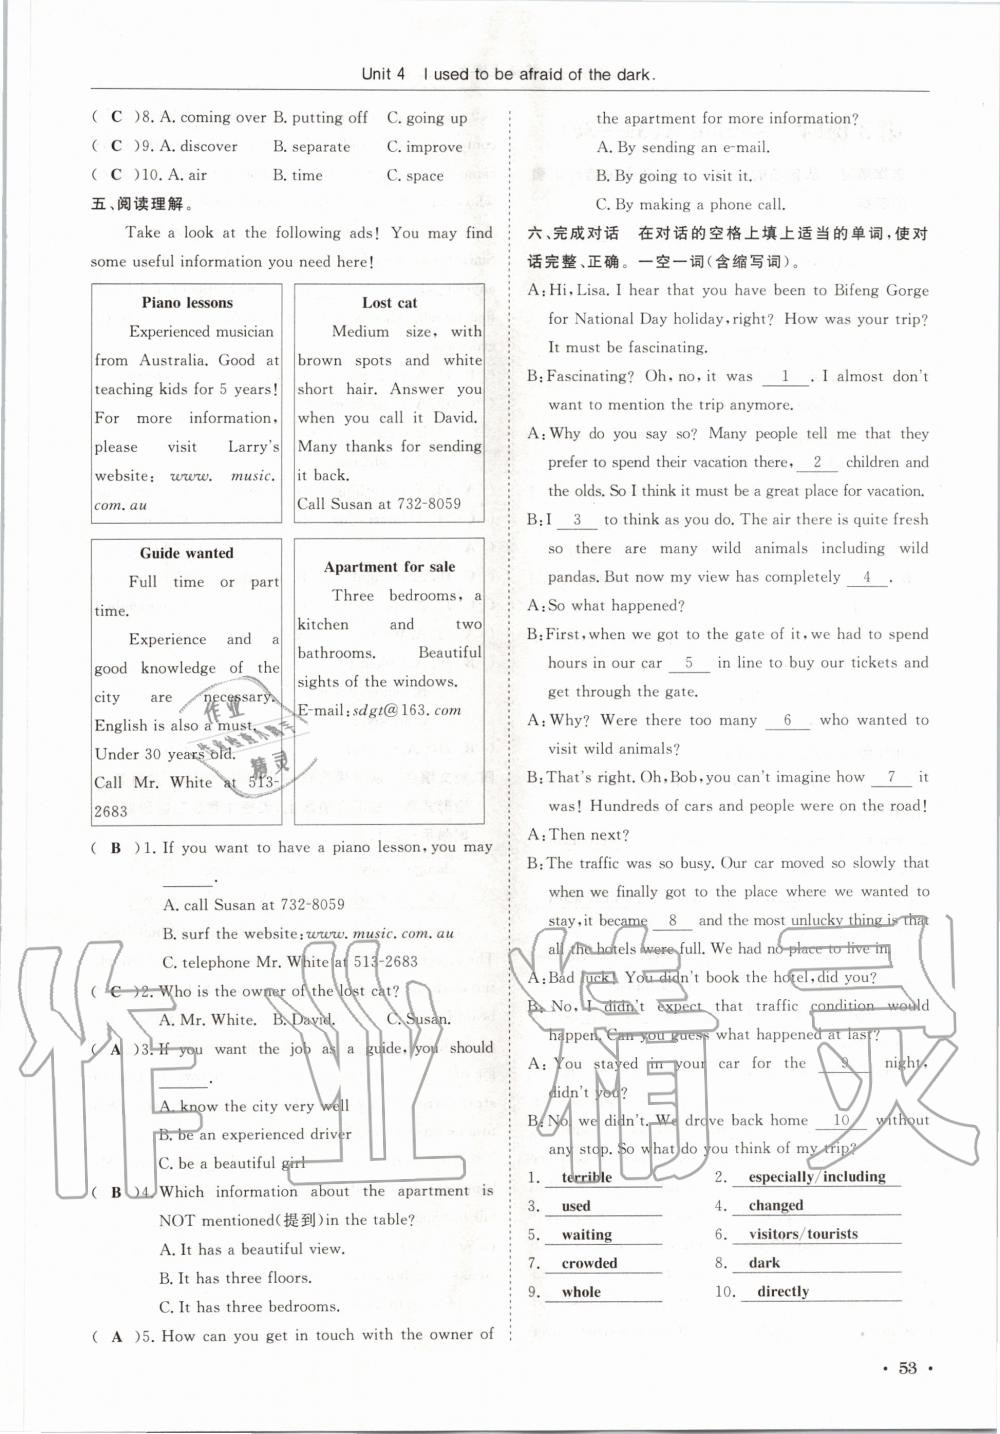 Unit 4 I used to be afraid of the dark.
( C )8. A. coming over B. putting off C. going up
( C )9. A. discover B. separate C. improve
( C )10. A. air B. time C. space
五、阅读理解。
Take a look at the following ads! You may find
some useful information you need here!
Piano lessons
Experienced musician
from Australia. Good at
teaching kids for 5 years!
For more information,
please visit Larry's
website: www. music.
com. au
Lost cat
Medium size, with
brown spots and white
short hair. Answer you
when you call it David.
Many thanks for sending
it back.
Call Susan at 732-8059
Guide wanted
Full time or part
time.
Experience and a
good knowledge of the
city are necessary.
English is also a must.
Under 30 years old.
Call Mr. White at 513-
2683
Apartment for sale
Three bedrooms, a
kitchen and two
bathrooms. Beautiful
sights of the windows.
E-mail: sdgt@163. com
( B )1. If you want to have a piano lesson, you may
______.
A. call Susan at 732-8059
B. surf the website: www. music. com. au
C. telephone Mr. White at 513-2683
( C )2. Who is the owner of the lost cat?
A. Mr. White. B. David. C. Susan.
( A )3. If you want the job as a guide, you should
______.
A. know the city very well
B. be an experienced driver
C. be a beautiful girl
( B )4. Which information about the apartment is
NOT mentioned(提到)in the table?
A. It has a beautiful view.
B. It has three floors.
C. It has three bedrooms.
( A )5. How can you get in touch with the owner of
the apartment for more information?
A. By sending an e-mail.
B. By going to visit it.
C. By making a phone call.
六、完成对话 在对话的空格上填上适当的单词,使对
话完整、正确。一空一词(含缩写词)。
A: Hi, Lisa. I hear that you have been to Bifeng Gorge
for National Day holiday, right? How was your trip?
It must be fascinating.
B: Fascinating? Oh, no, it was 1 . I almost don't
want to mention the trip anymore.
A: Why do you say so? Many people tell me that they
prefer to spend their vacation there, 2 children and
the olds. So I think it must be a great place for vacation.
B: I 3 to think as you do. The air there is quite fresh
so there are many wild animals including wild
pandas. But now my view has completely 4 .
A: So what happened?
B: First, when we got to the gate of it, we had to spend
hours in our car 5 in line to buy our tickets and
get through the gate.
A: Why? Were there too many 6 who wanted to
visit wild animals?
B: That's right. Oh, Bob, you can't imagine how 7 it
was! Hundreds of cars and people were on the road!
A: Then next?
B: The traffic was so busy. Our car moved so slowly that
when we finally got to the place where we wanted to
stay, it became 8 and the most unlucky thing is that
all the hotels were full. We had no place to live in.
A: Bad luck! You didn't book the hotel, did you?
B: No, I didn't expect that traffic condition would
happen. Can you guess what happened at last?
A: You stayed in your car for the 9 night,
didn't you?
B: No, we didn't. We drove back home 10 without
any stop. So what do you think of my trip?
1. terrible 2. especially/including
3. used 4. changed
5. waiting 6. visitors/tourists
7. crowded 8. dark
9. whole 10. directly
· 53 ·
作业精灵
作业
精灵